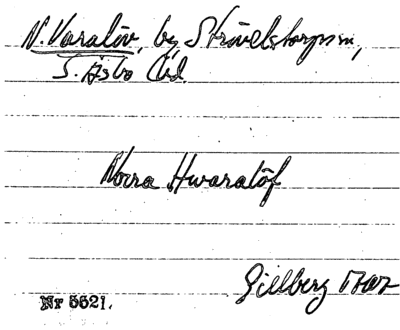 N. Varalöv, by Strövelstorps sn,
S. Åsbo hd.
Norra Hwaralöf
Gillberg
Nr 5621.